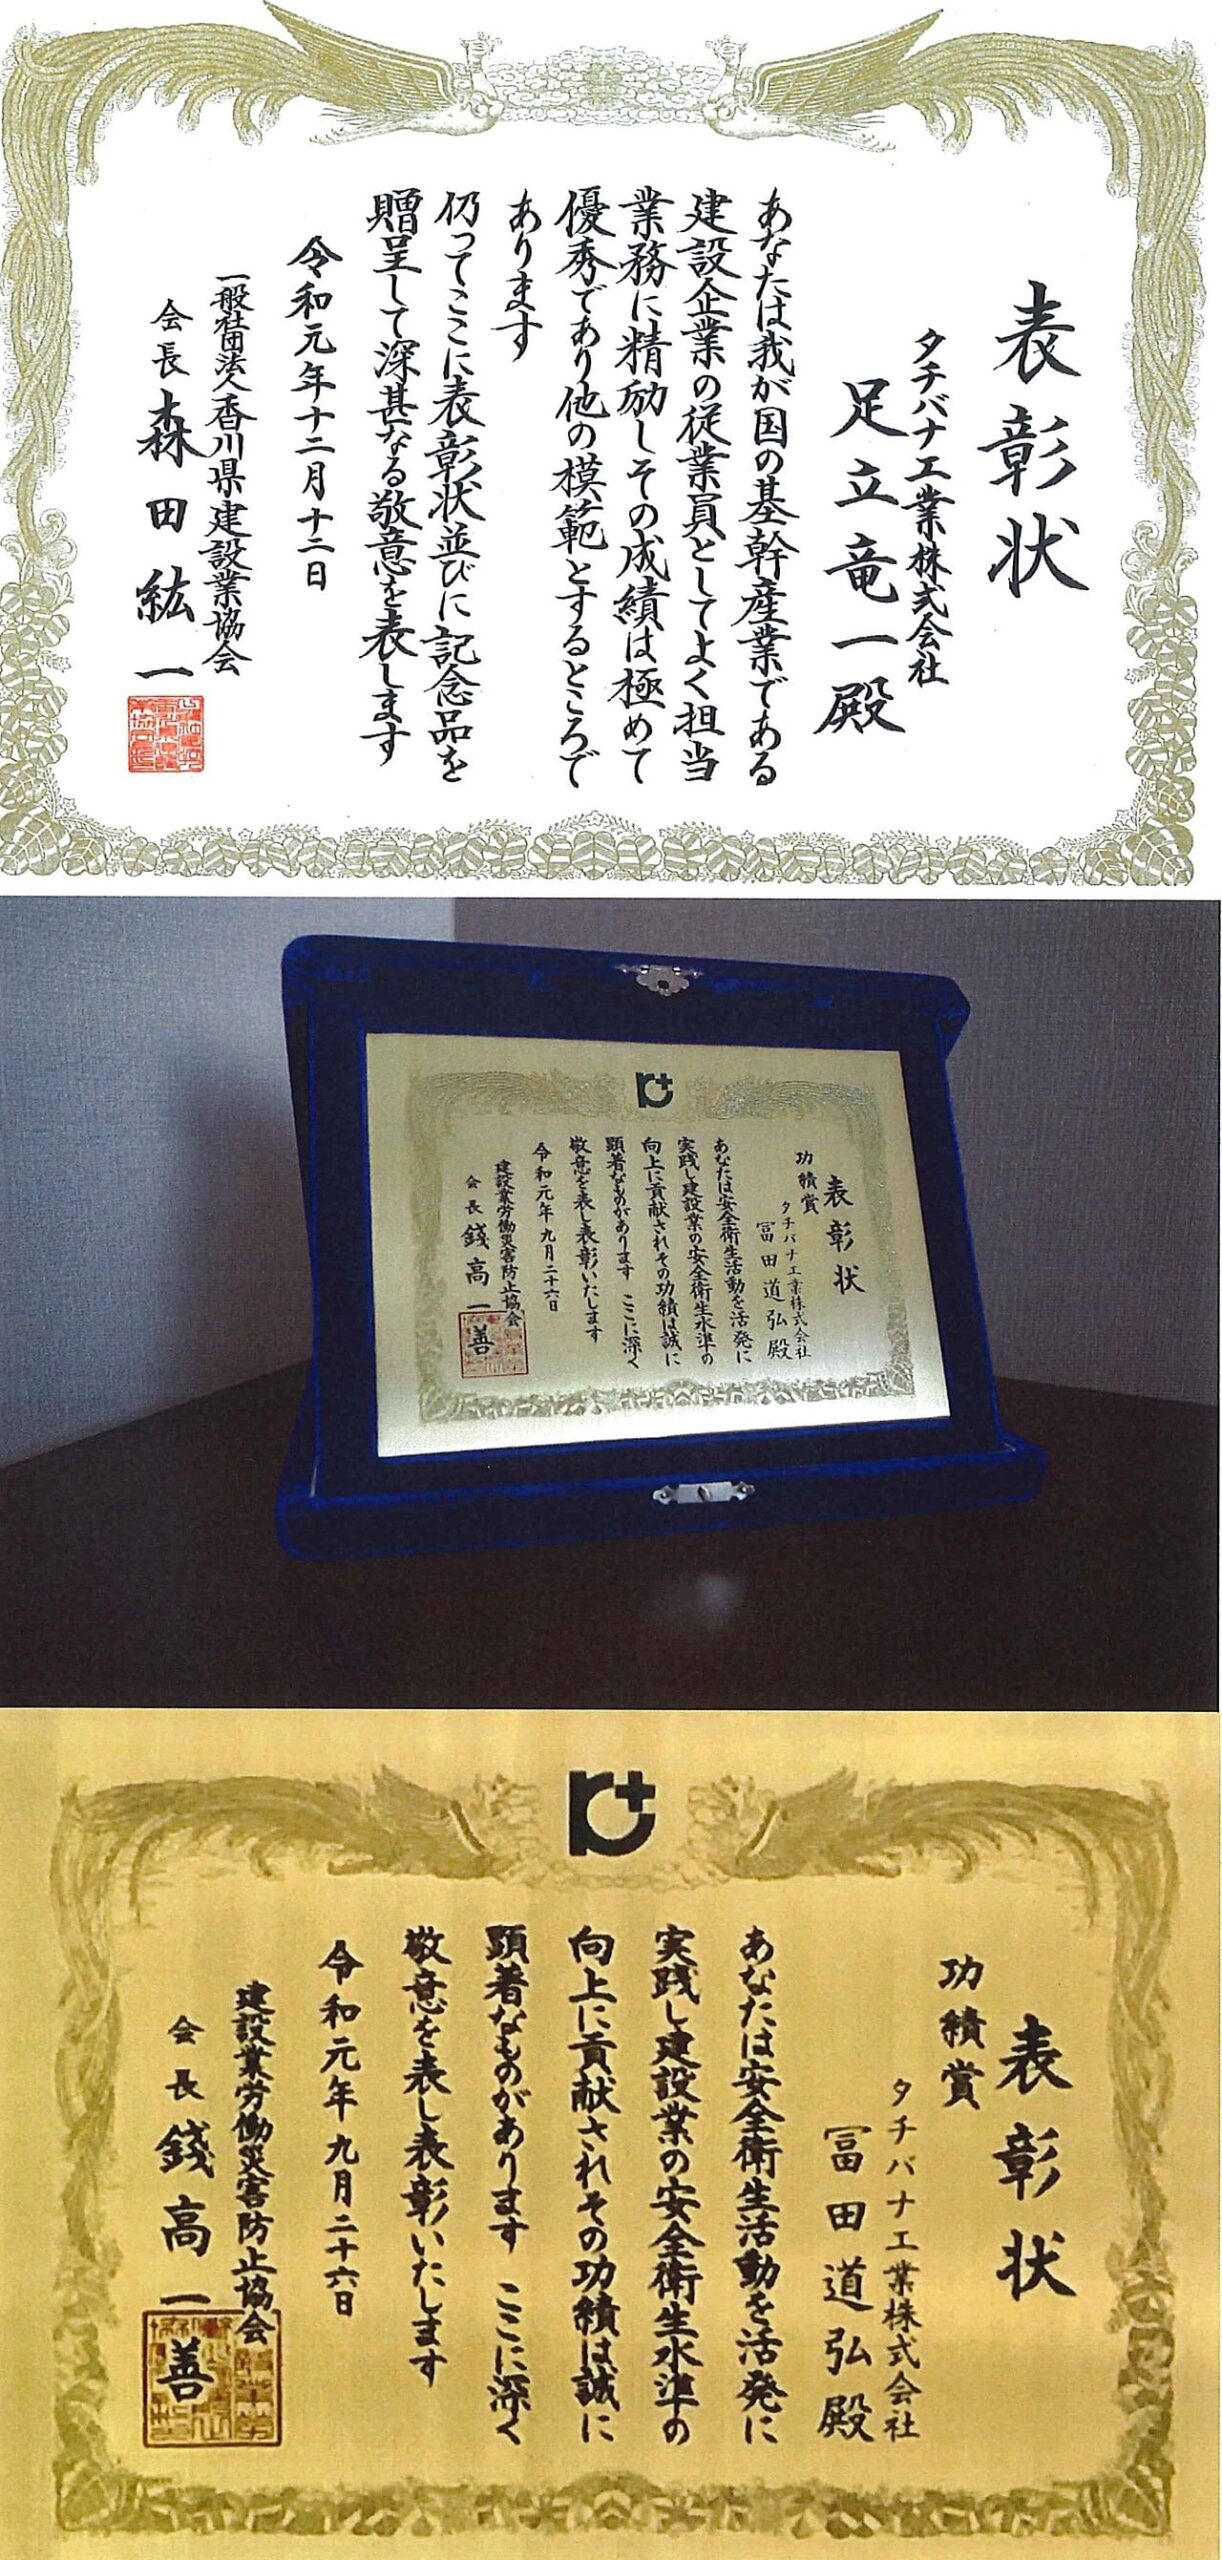 表彰状
タチバナ工業株式会社
足立竜一殿
あなたは我が国の基幹産業である
建設企業の従業員としてよく担当
業務に精励しその成績は極めて
優秀であり他の模範とするところで
あります
仍ってここに表彰状並びに記念品を
贈呈して深甚なる敬意を表します
令和元年十二月十二日
一般社団法人香川県建設業協会
会長 森田紘一
表彰状
功績賞
タチバナ工業株式会社
冨田道弘殿
あなたは安全衛生活動を活発に
実践し建設業の安全衛生水準の
向上に貢献されその功績は誠に
顕著なものがあります ここに深く
敬意を表し表彰いたします
令和元年九月二十六日
建設業労働災害防止協会
会長 錢高一善
表彰状
功績賞
タチバナ工業株式会社
冨田道弘殿
あなたは安全衛生活動を活発に
実践し建設業の安全衛生水準の
向上に貢献されその功績は誠に
顕著なものがあります ここに深く
敬意を表し表彰いたします
令和元年九月二十六日
建設業労働災害防止協会
会長 錢高一善